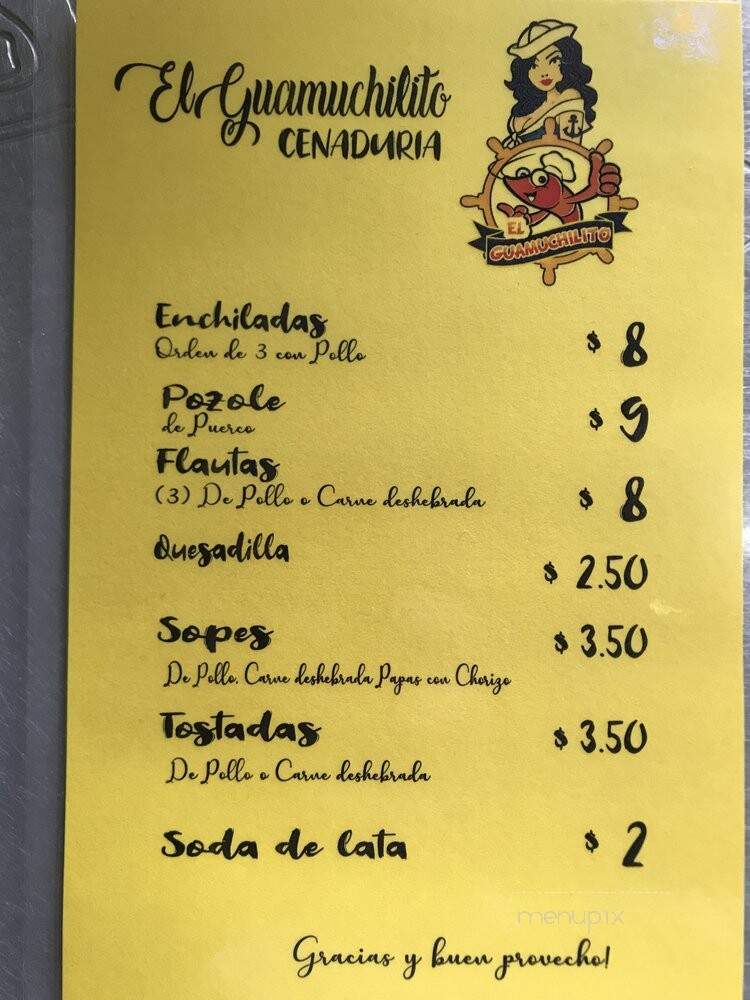 El Guamuchilito
CENADURIA
EL
GUAMUCHILITO
Enchiladas
Orden de 3 con Pollo $ 8
Pozole
de Puerco $ 9
Flautas
(3) De Pollo o Carne deshebrada $ 8
Quesadilla $ 2.50
Sopes $ 3.50
De Pollo, Carne deshebrada Papas con Chorizo
Tostadas $ 3.50
De Pollo o Carne deshebrada
Soda de lata $ 2
menupix
Gracias y buen provecho!